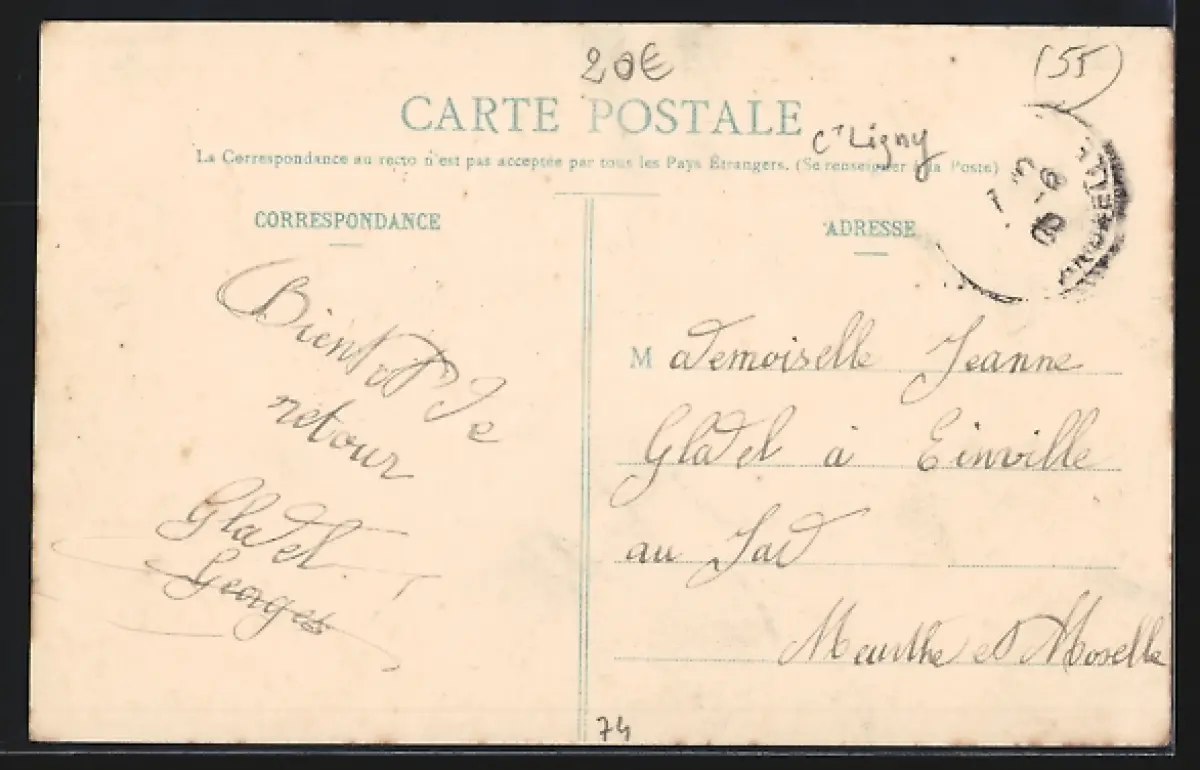 20€
(55)
CARTE POSTALE
Ct Ligny
La Correspondance au recto n'est pas acceptée par tous les Pays Étrangers. (Se renseigner à la Poste)
CORRESPONDANCE
ADRESSE
Bientot Je
retour
Gladel
Georges
Mademoiselle Jeanne
Gladel à Einville
au Jad
Meurthe et Moselle
74